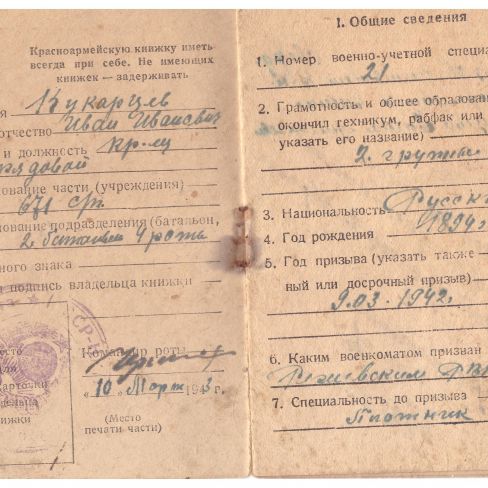 Красноармейскую книжку иметь
всегда при себе. Не имеющих
книжек — задерживать
я Букарцев
отчество Иван Иванович
и должность кр-ц
рядовой
ование части (учреждения)
671 сп.
ование подразделения (батальон,
2 батальон 4 рота
ного знака
подпись владельца книжки
Командир роты
"10" Март 1943 г.
(Место
печати части)
есто
для
карточки
адельца
нижки
1. Общие сведения
1. Номер военно-учетной специа
21
2. Грамотность и общее образован
окончил техникум, рабфак или
указать его название)
2. группы
3. Национальность Русский
4. Год рождения 1894г.
5. Год призыва (указать также
ный или досрочный призыв)
9.03.1942г.
6. Каким военкоматом призван
Режевским РВК
7. Специальность до призыва
Плотник